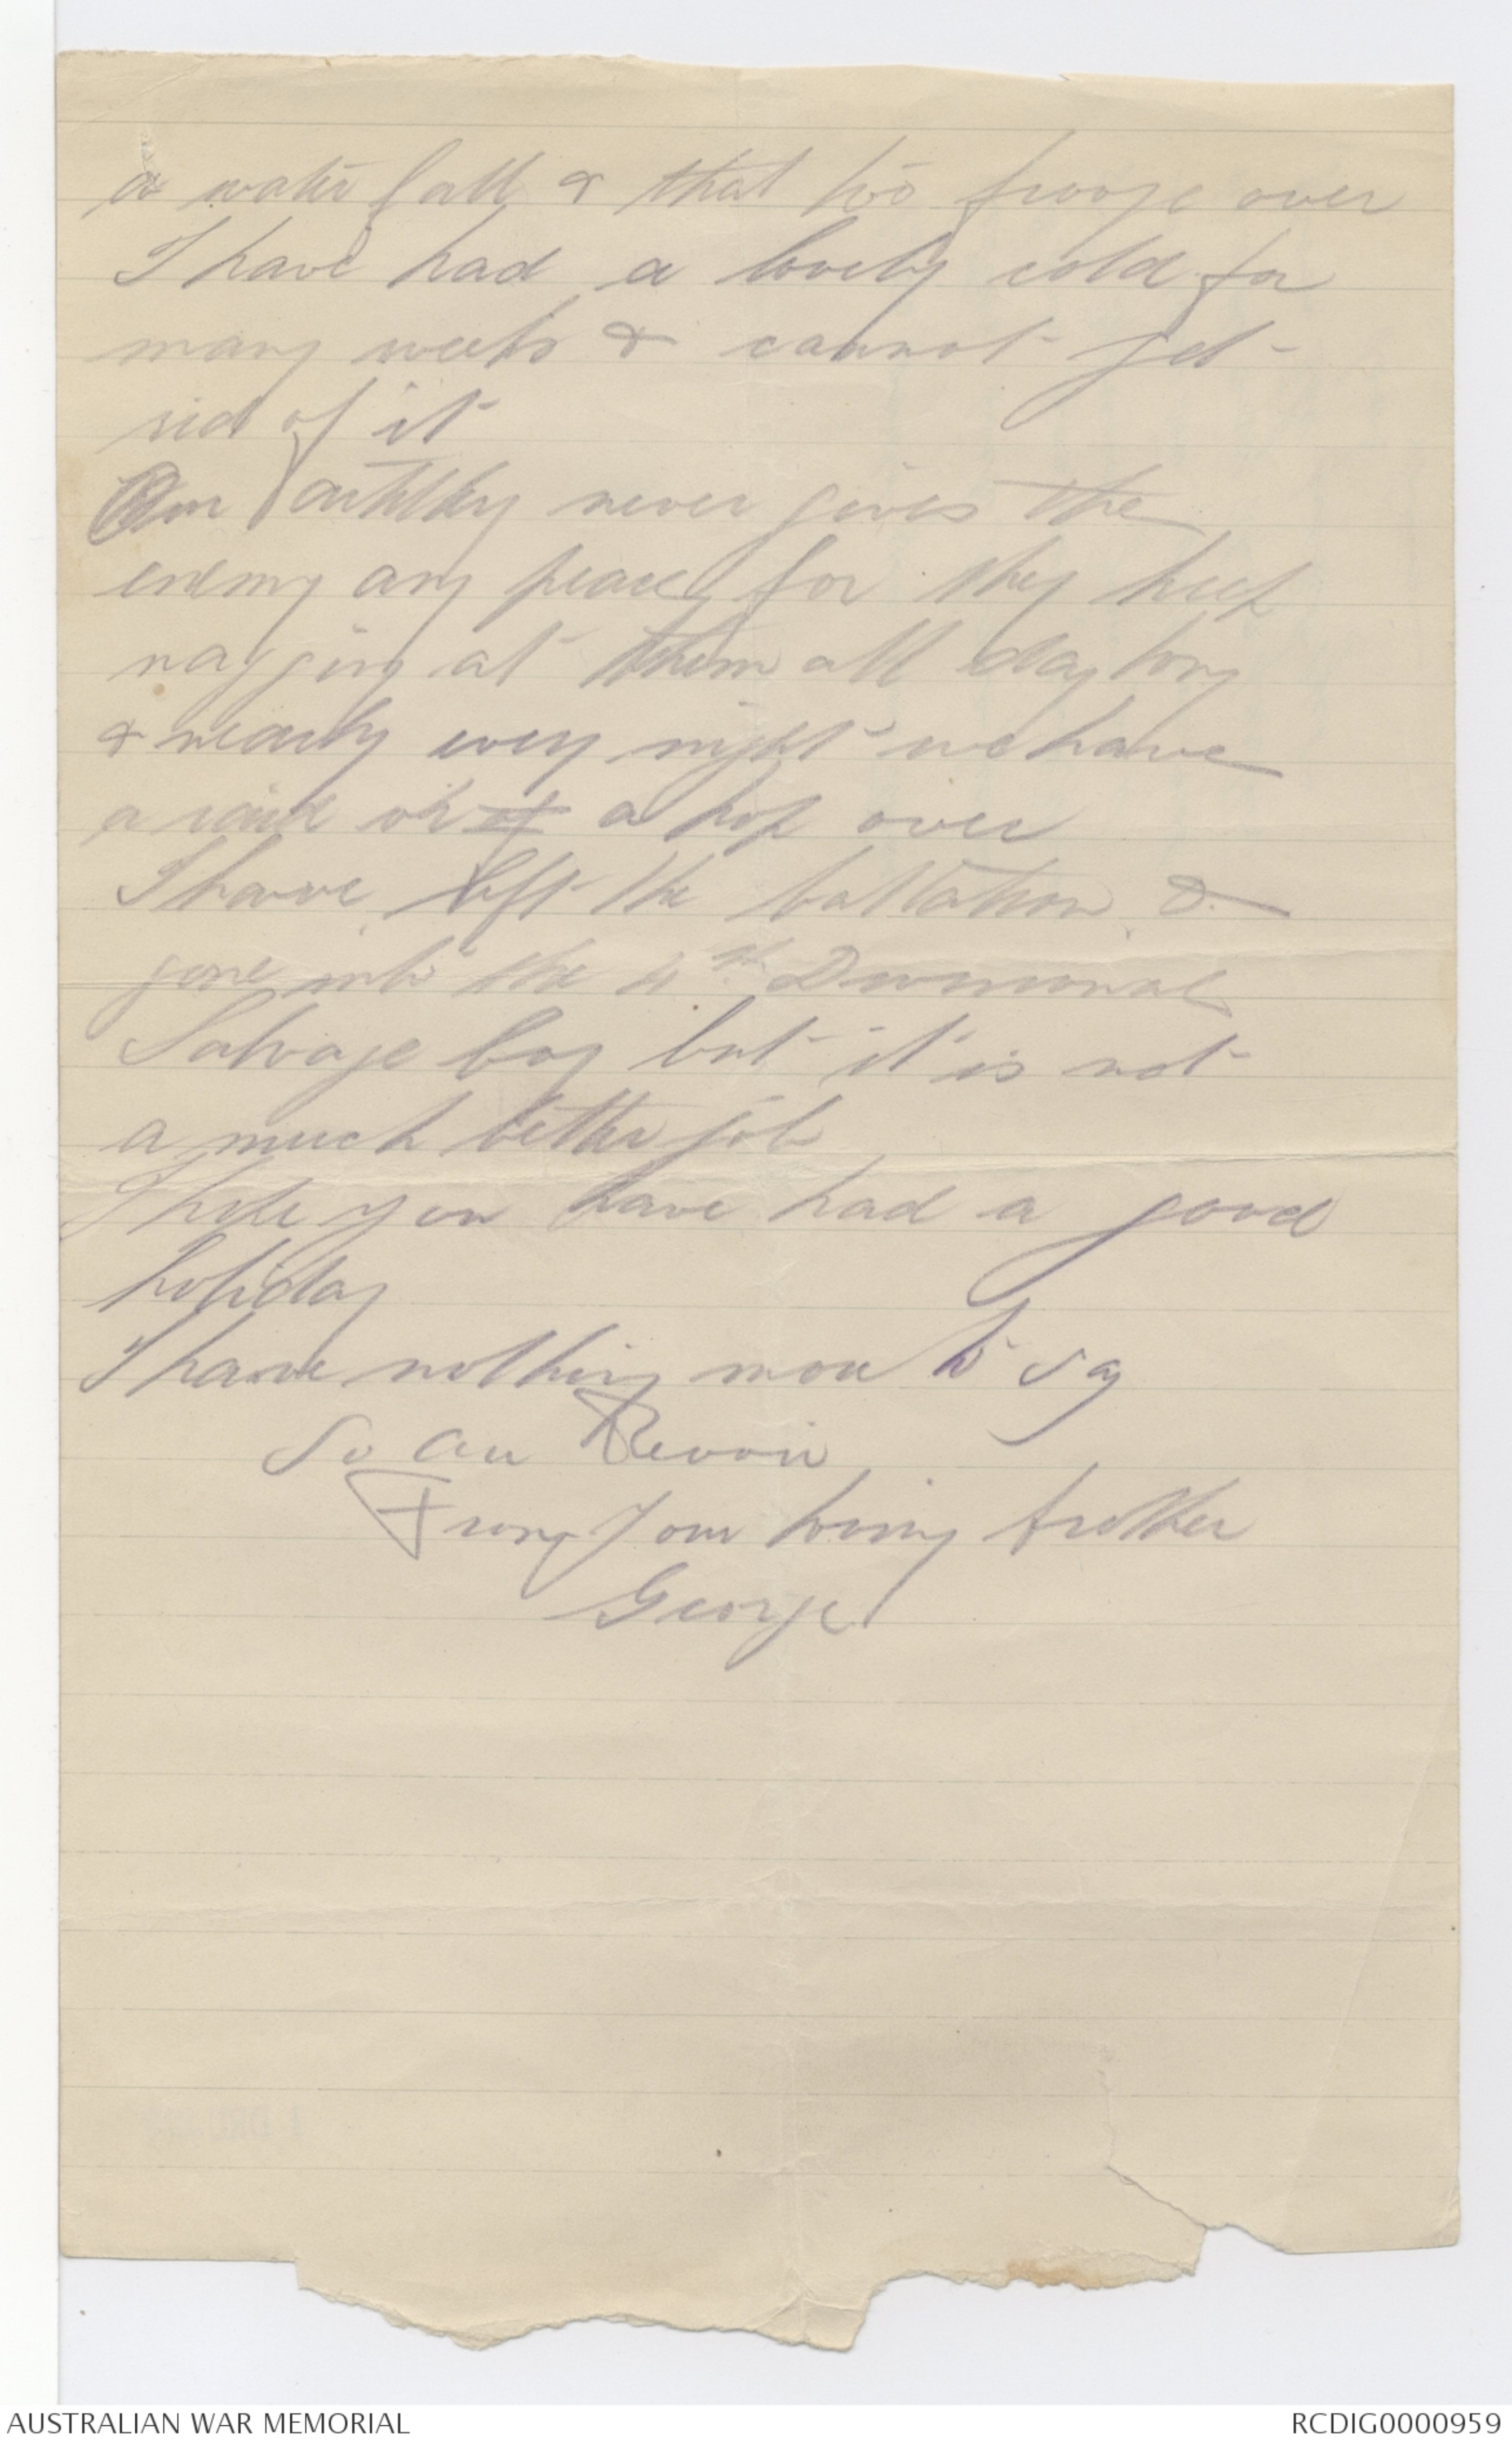 a water fall & that too frooze over
I have had a lovely cold for
many weeks & cannot get
rid of it
Our artillery never gives the
enemy any peace for they keep
nagging at them all day long
& nearly every night we have
a raid or of a hop over
I have left the battalion &
gone into the 4th Divisional
Salvage Coy but it is not
a much better job
I hope you have had a good
holiday
I have nothing more to say
So Au Revoir
From Your loving brother
George
AUSTRALIAN WAR MEMORIAL
RCDIG0000959